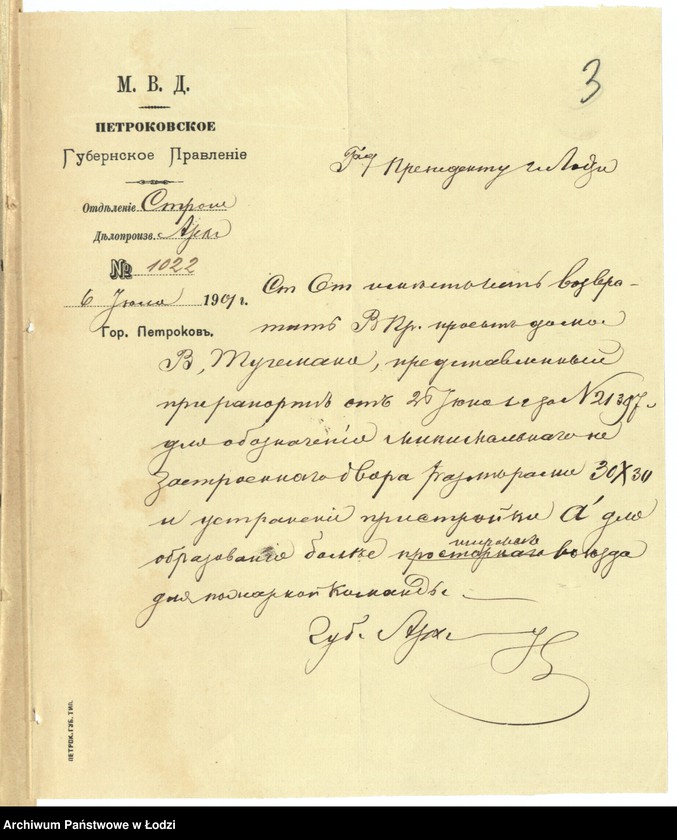 3
М. В. Д.
ПЕТРОКОВСКОЕ
Губернское Правленіе
Отдѣленіе Строи
Дѣлопроизв.
№ 1022
6 Іюля 1901 г.
Гор. Петроковъ.
Президенту г. Лодзи
возвра-
тить В Пр. проектъ дома
В, представленный
при рапортѣ отъ Іюня за N 21397
для обозначенія минимальнаго не
застроеннаго двора размѣрами 30X30
и устраненія пристройки а для
образованія болѣе просторнаго въѣзда
для пожарной команды.
Губ. Арх
ПЕТРОК.ГУБ.ТИП.
Archiwum Państwowe w Łodzi